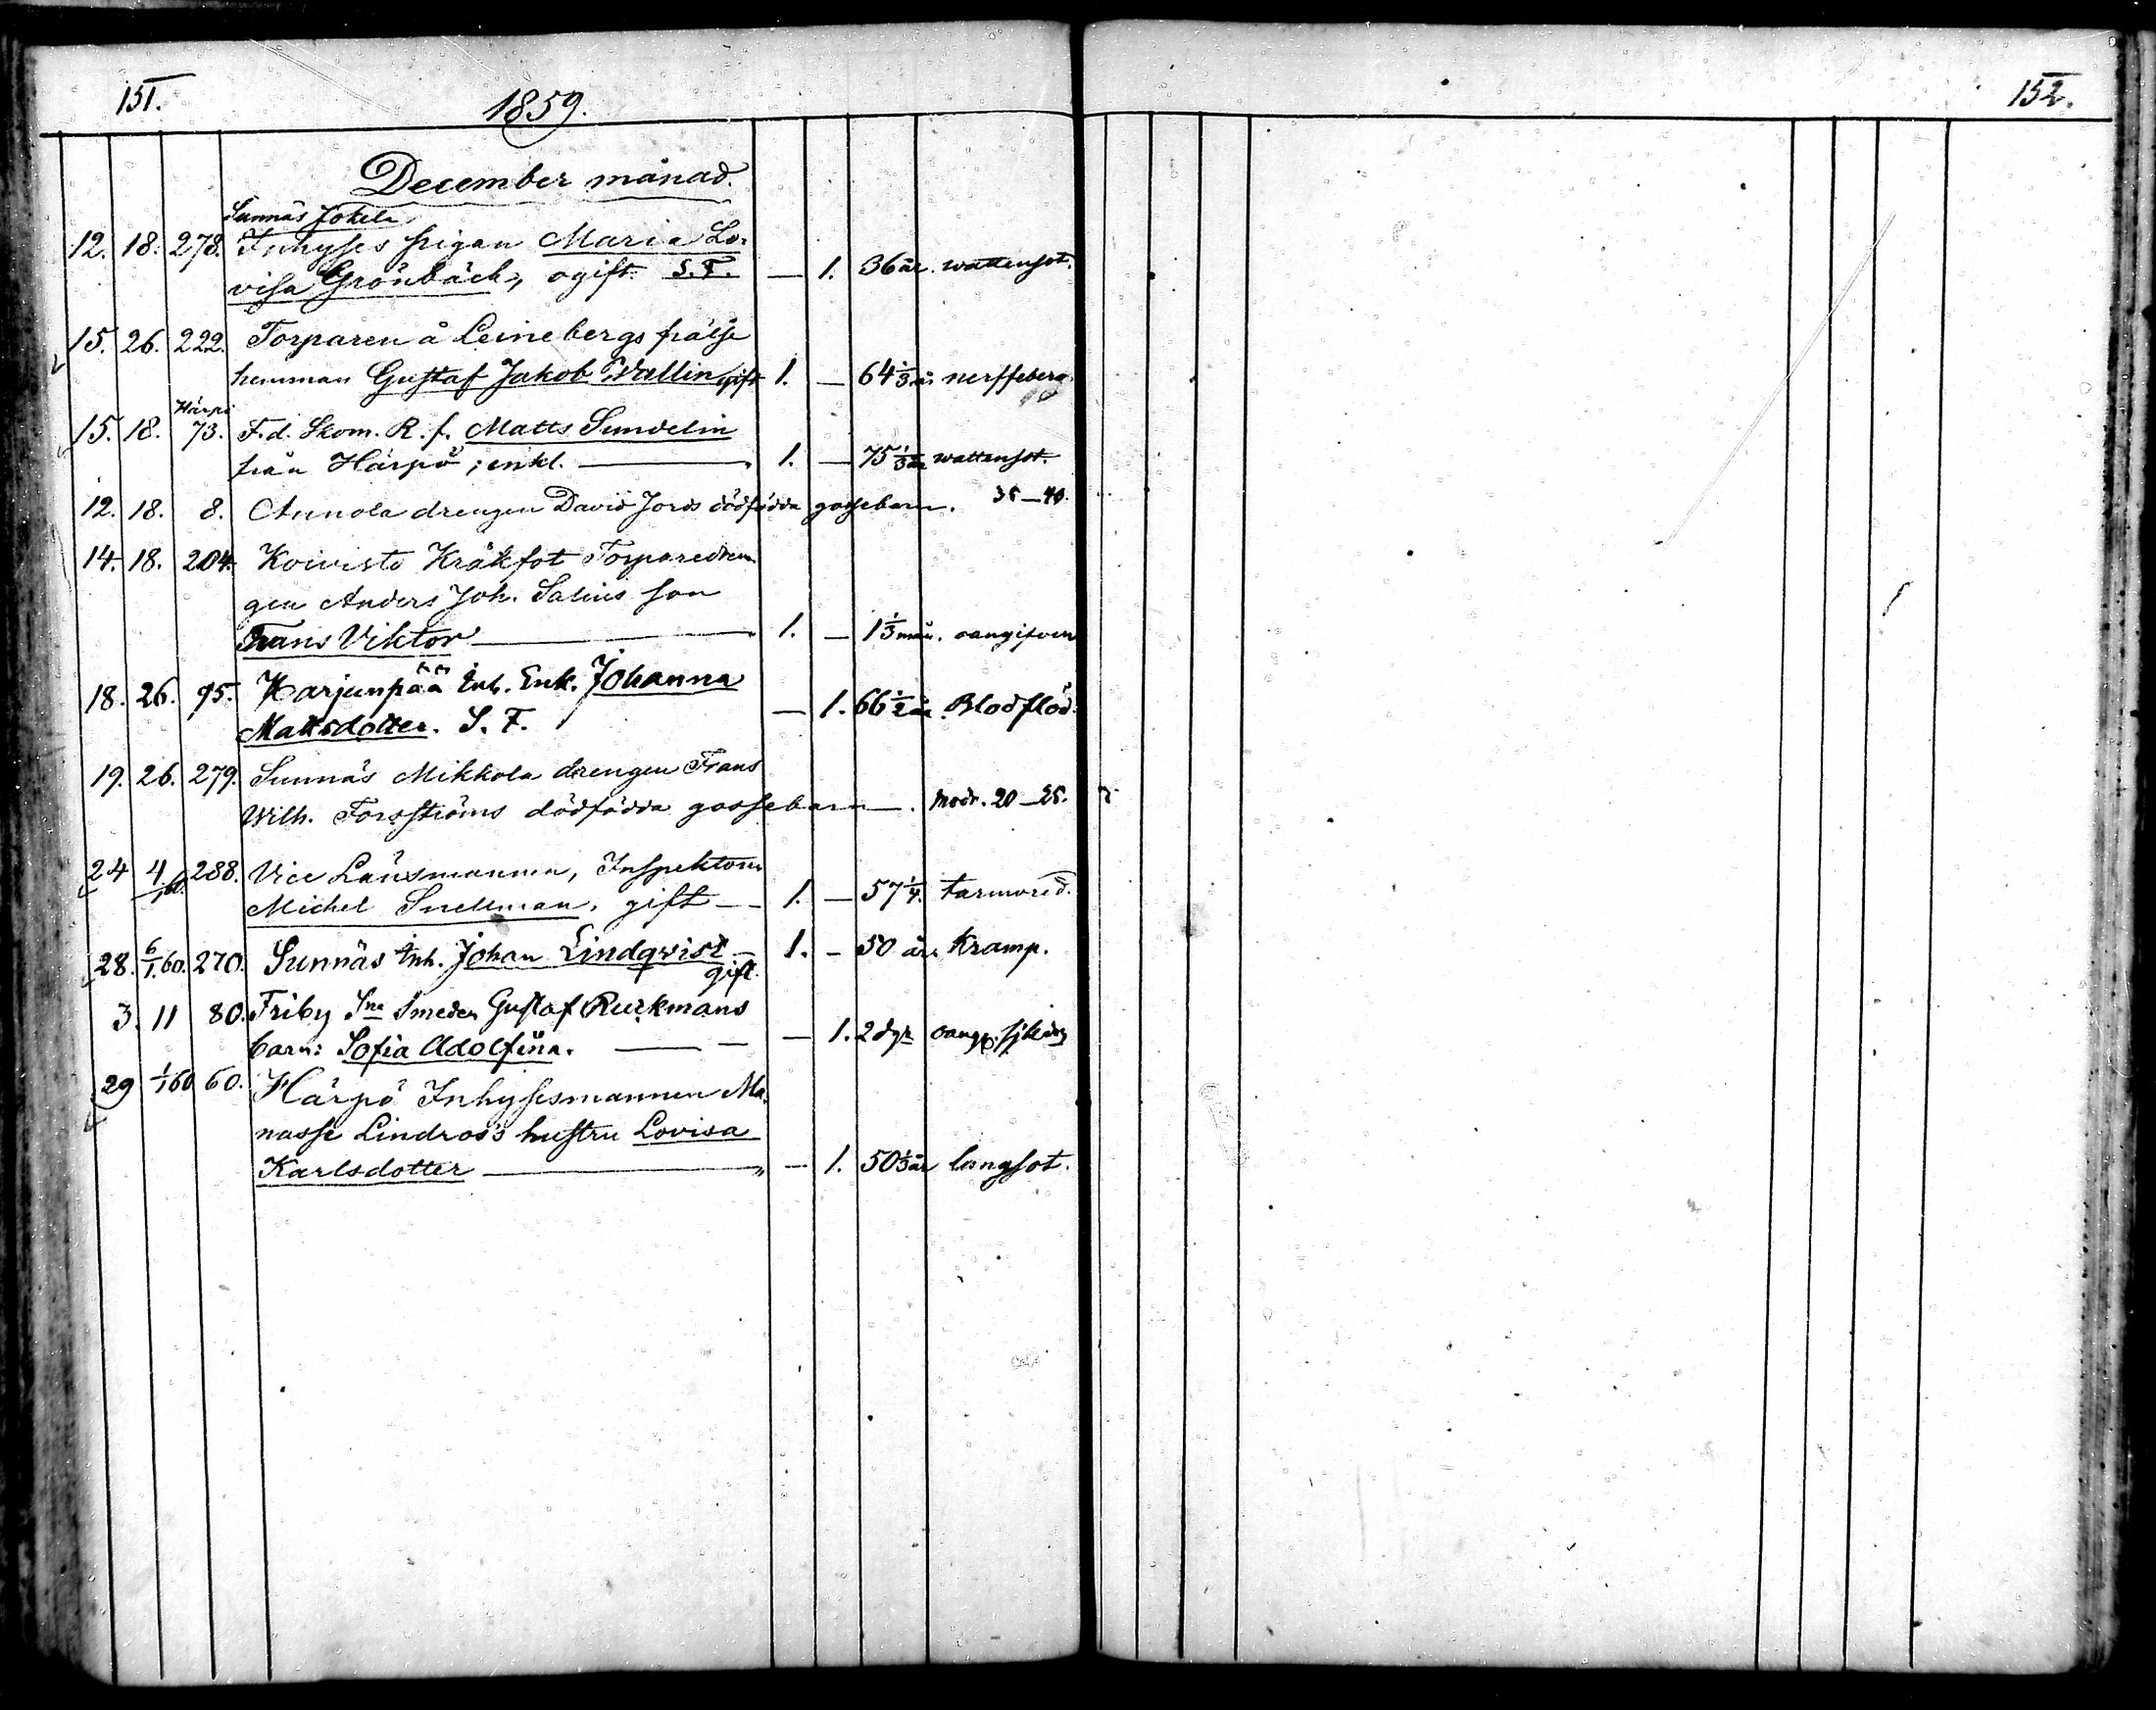 151.
1859.
152.
December månad.
Sunnäs Jokela
12. 18. 278. Inhyses pigan Maria Lo-
visa Grönbäck, ogift. S.F. — 1. 36 år. wattensot.
15. 26. 222. Torparen å Leinebergs frälse
hemman Gustaf Jakob Wallin gift 1. — 64 1/3 år nerffeber
Härpö
15. 18. 73. F.d. Skom. R.f. Matts Sundelin
från Härpö; enkl. — 1. — 75 1/3 år wattensot.
12. 18. 8. Annola drengen David Jords dödfödda gossebarn. 35—40.
14. 18. 204. Koivisto Kråkfot Torparedren-
gen Anders Joh. Salins son
Frans Viktor — 1. — 1 1/3 mån. oangifven
18. 26. 95. Harjunpää Inh. Enk. Johanna
Mattsdotter. S.F. — 1. 66 1/2 år Blodflöd.
19. 26. 279. Sunnäs Mikkola drengen Frans
Wilh. Forsströms dödfödda gossebarn —. modr. 20—25.
24 4/1 60. 288. Vice Länsmannen, Inspektoren
Michel Snellman, gift — 1. — 57 1/4. tarmvred.
28. 6/1.60. 270. Sunnäs Inh. Johan Lindqvist — 1. — 50 år. Kramp.
gift.
3. 11 80. Friby Sne Smeden Gustaf Ruckmans
barn: Sofia Adolfina. — — 1. 2 dgr oang. sjukdom
29 1/1 60 60. Härpö Inhysesmannen Ma-
nasse Lindros's hustru Lovisa
Karlsdotter — „ — 1. 50 1/3 år lungsot.